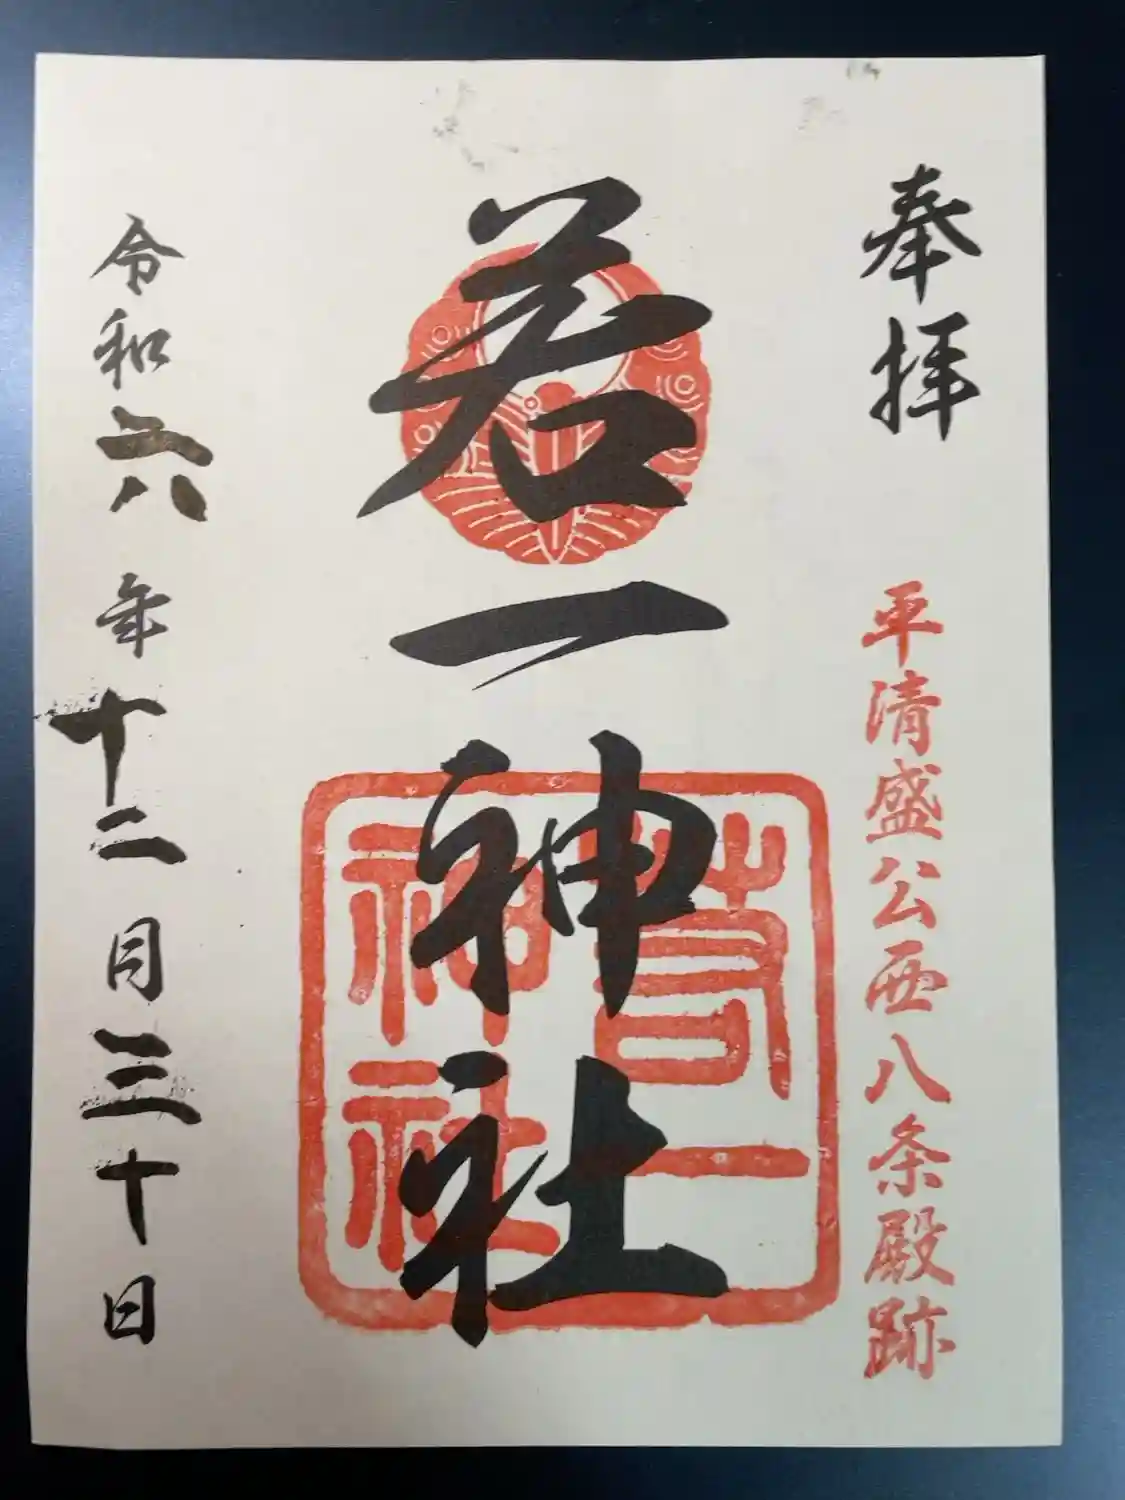 奉拝
平清盛公西八条殿跡
若一神社
若一
神社
令和六年十二月三十日